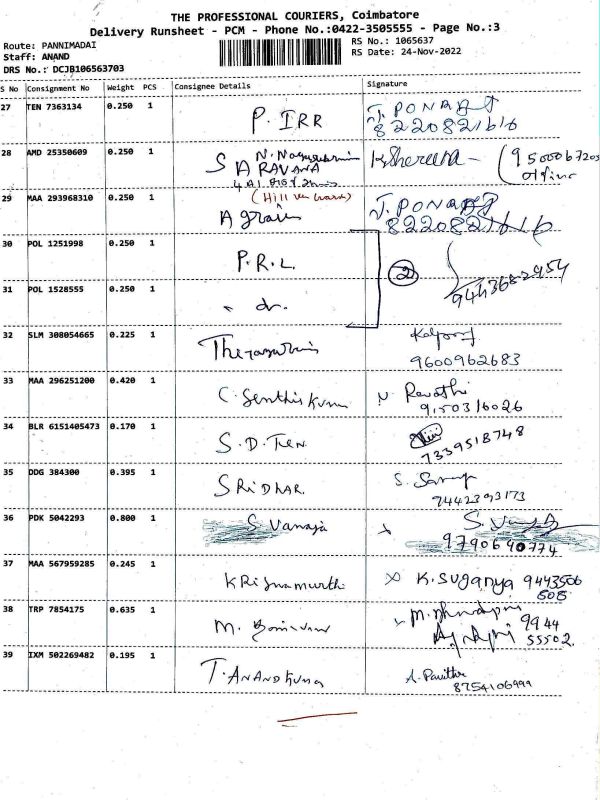 THE PROFESSIONAL COURIERS, Coimbatore
Delivery Runsheet - PCM - Phone No.:0422-3505555 - Page No.:3
Route: PANNIMADAI
Staff: ANAND
DRS No.: DCJB106563703
RS No.: 1065637
RS Date: 24-Nov-2022
S No Consignment No Weight PCS Consignee Details Signature
27 TEN 7363134 0.250 1 P. IRR J. PONRAJ
8220821616
28 AMD 25350609 0.250 1
SARAVANA
29 MAA 293968310 0.250 1 J. PONRAJ
8220821616
30 POL 1251998 0.250 1 P.R.L. 2
31 POL 1528555 0.250 1 9443682954
32 SLM 308054665 0.225 1
9600962683
33 MAA 296251200 0.420 1 C. Senthil Kumar Revathi
9150316026
34 BLR 6151405473 0.170 1 S.D. TEN
7339518748
35 DDG 384300 0.395 1 SRIDHAR.
7442393173
36 PDK 5042293 0.800 1 S. Vanaja
9790640774
37 MAA 567959285 0.245 1 KRisnamurthi K. Suganya 9443506
608
38 TRP 7854175 0.635 1 M. 9944
55502
39 IXM 502269482 0.195 1 T. ANAND Kumar A. Pavithra
8754106999